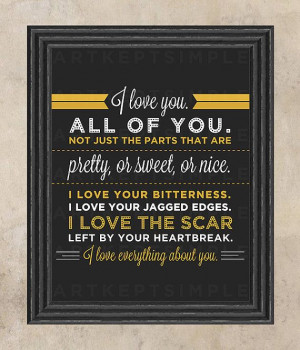 ARTKEPTSIMPLE
I love you.
ALL OF YOU.
NOT JUST THE PARTS THAT ARE
pretty, or sweet, or nice.
I LOVE YOUR BITTERNESS.
I LOVE YOUR JAGGED EDGES.
I LOVE THE SCAR
LEFT BY YOUR HEARTBREAK.
I love everything about you.
ARTKEPTSIMPLE